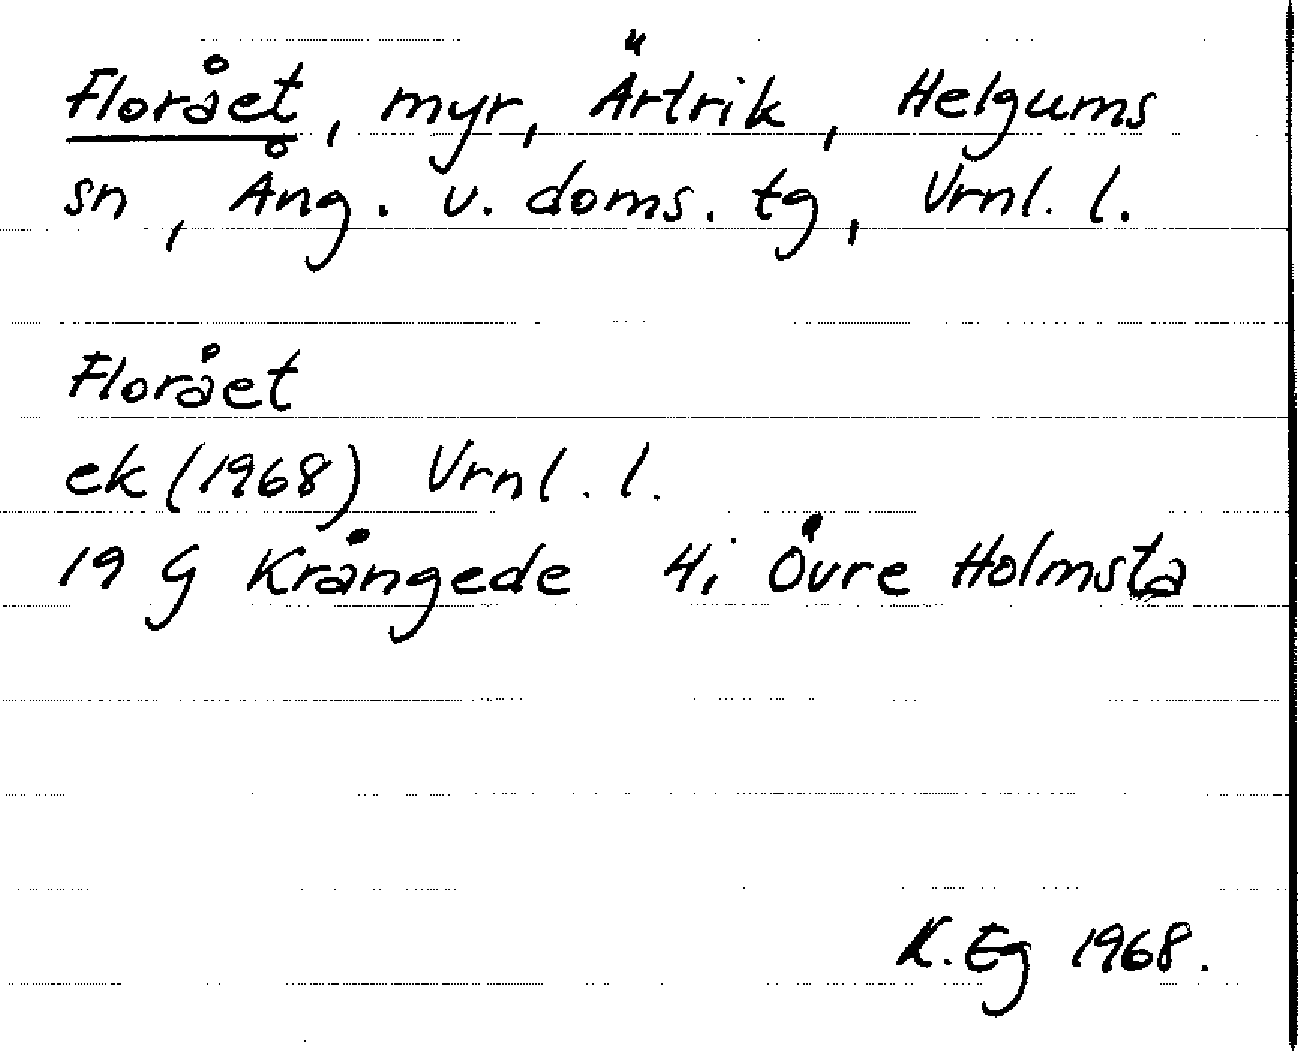 Florået, myr, Ärtrik, Helgums
sn, Ång. v. doms. tg, Vrnl. l.
Florået
ek (1968) Vrnl. l.
19 G Krångede 4i Övre Holmsta
K. Eg 1968.